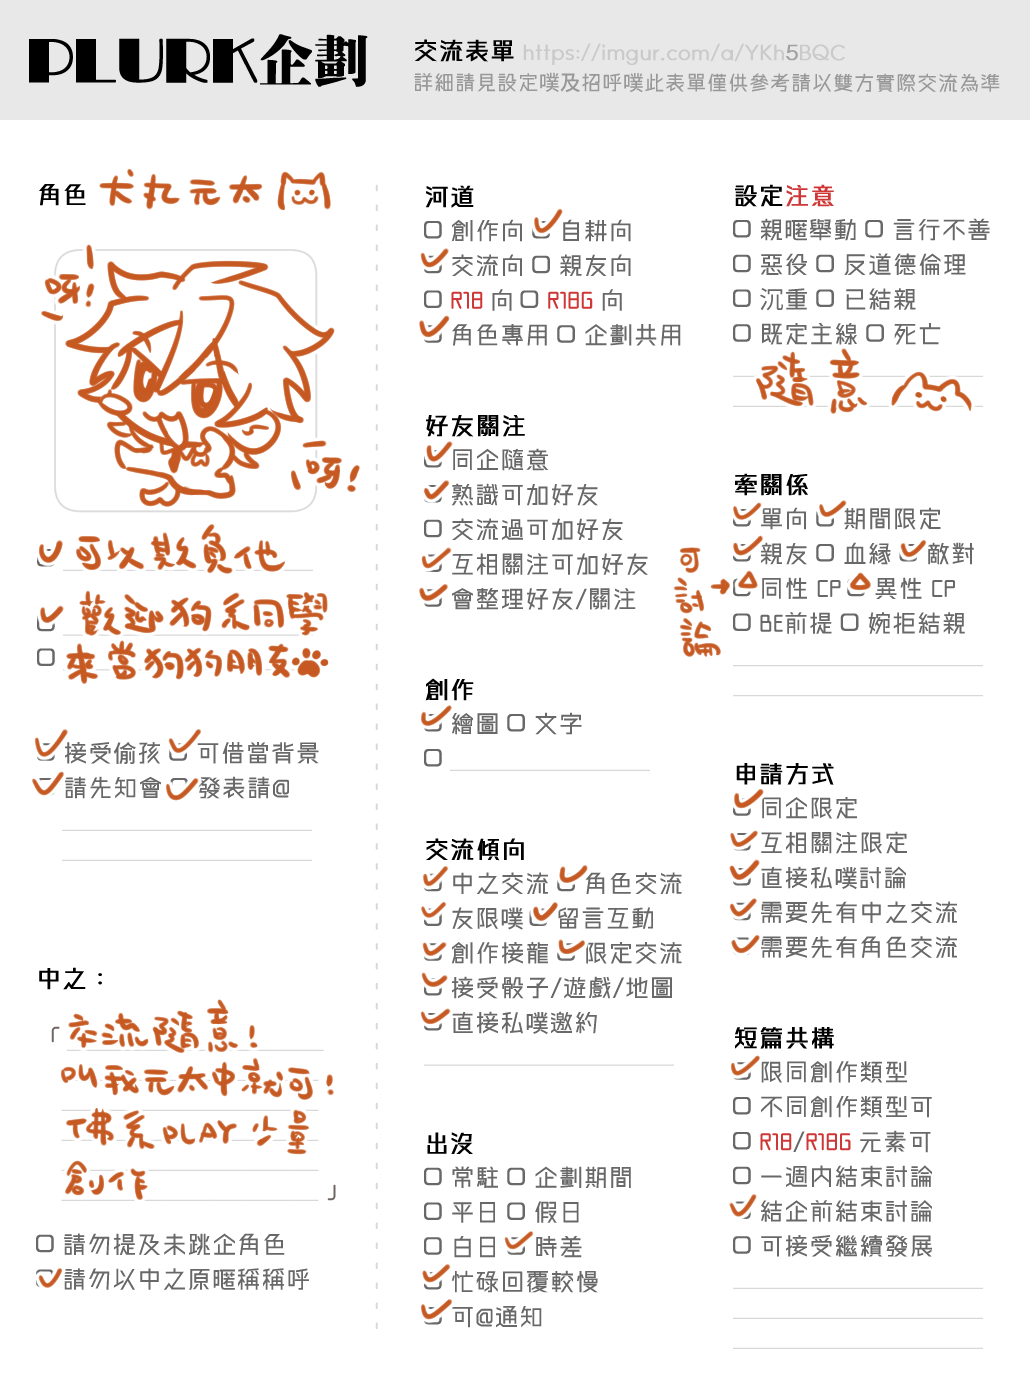 PLURK企劃
交流表單 https://imgur.com/a/YKh5BQC
詳細請見設定噗及招呼噗此表單僅供參考請以雙方實際交流為準
角色 犬丸元太
呀!
呀!
可以欺負他
歡迎狗系同學
來當狗狗朋友
接受偷孩 可借當背景
請先知會 發表請@
中之:
「交流隨意!
叫我元太中就可!
佛系PLAY 少量
創作
」
請勿提及未跳企角色
請勿以中之原暱稱稱呼
河道
創作向 自耕向
交流向 親友向
R18 向 R18G 向
角色專用 企劃共用
好友關注
同企隨意
熟識可加好友
交流過可加好友
互相關注可加好友
會整理好友/關注
創作
繪圖 文字
交流傾向
中之交流 角色交流
友限噗 留言互動
創作接龍 限定交流
接受骰子/遊戲/地圖
直接私噗邀約
出沒
常駐 企劃期間
平日 假日
白日 時差
忙碌回覆較慢
可@通知
設定注意
親暱舉動 言行不善
惡役 反道德倫理
沉重 已結親
既定主線 死亡
隨意
牽關係
單向 期間限定
親友 血緣 敵對
可討論→ 同性 CP 異性 CP
BE前提 婉拒結親
申請方式
同企限定
互相關注限定
直接私噗討論
需要先有中之交流
需要先有角色交流
短篇共構
限同創作類型
不同創作類型可
R18/R18G 元素可
一週內結束討論
結企前結束討論
可接受繼續發展